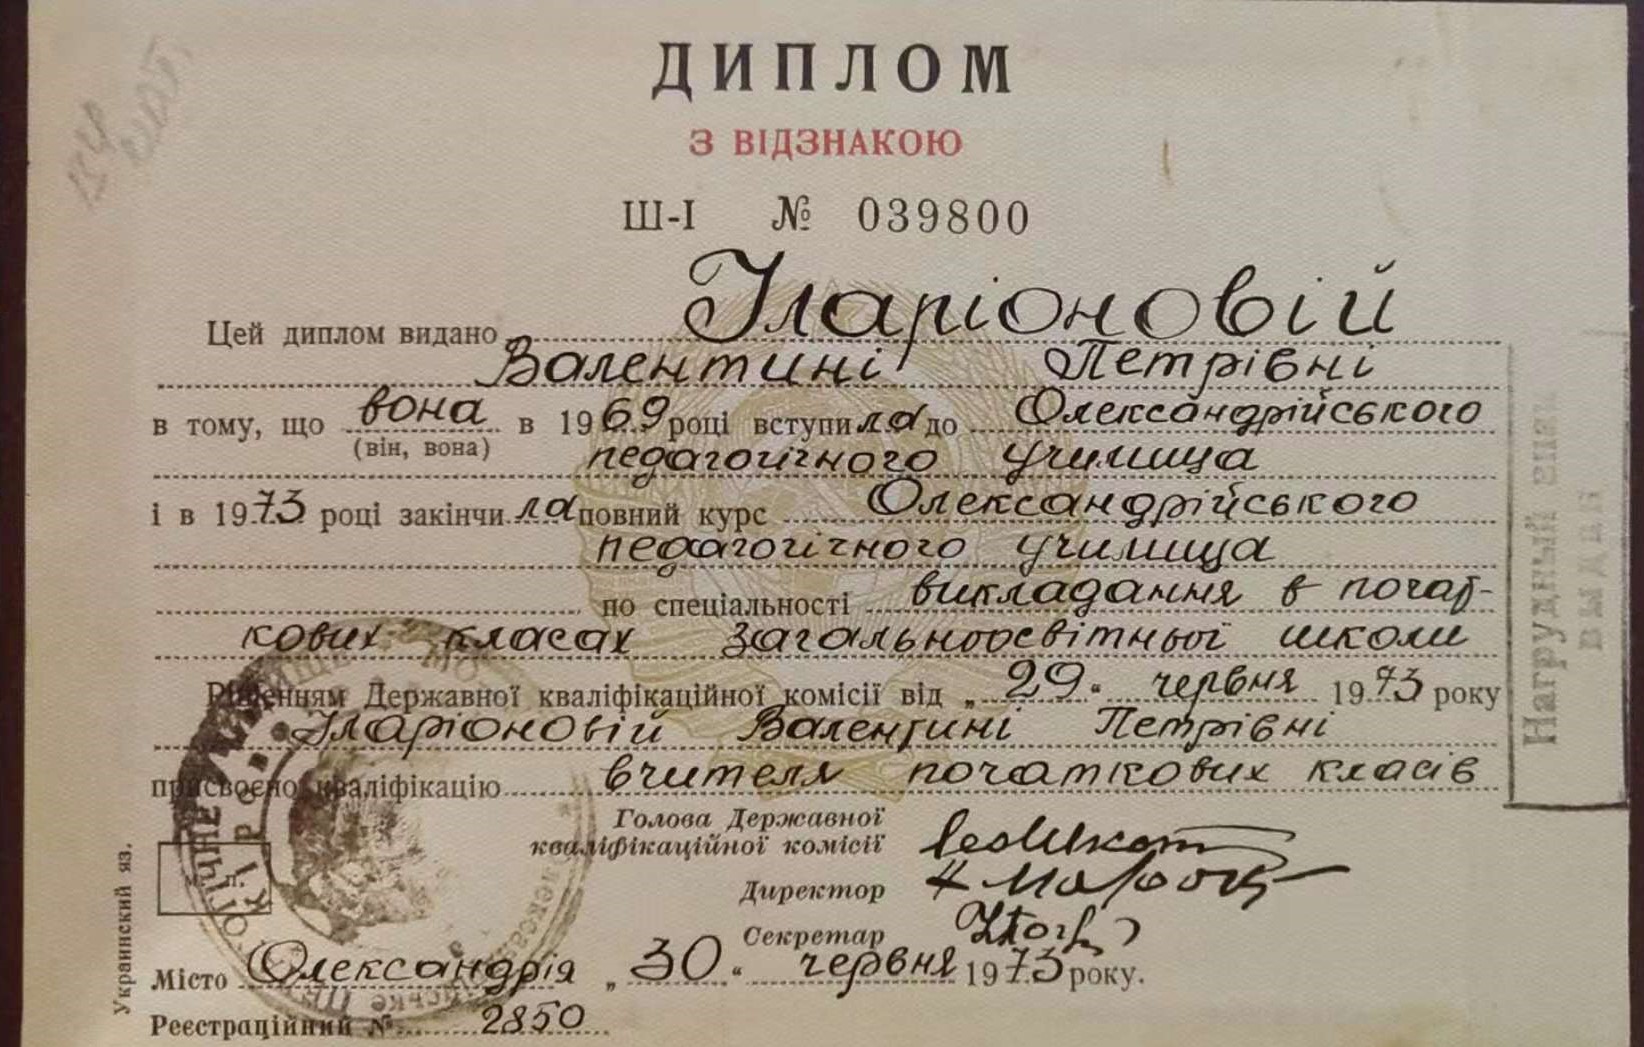 ДИПЛОМ
З ВІДЗНАКОЮ
Ш-І № 039800
Цей диплом видано Іларіоновій
Валентині Петрівні
в тому, що вона в 1969 році вступила до Олександрійського
(він, вона)
педагогічного училища
і в 1973 році закінчила повний курс Олександрійського
педагогічного училища
по спеціальності викладання в почат-
кових класах загальноосвітньої школи
Рішенням Державної кваліфікаційної комісії від „29“ червня 1973 року
Іларіоновій Валентині Петрівні
присвоєно кваліфікацію вчителя початкових класів
Голова Державної
кваліфікаційної комісії
Директор
Секретар
Місто Олександрія „30“ червня 1973 року.
Реєстраційний № 2850
Украинский яз.
Нагрудный знак
выдан